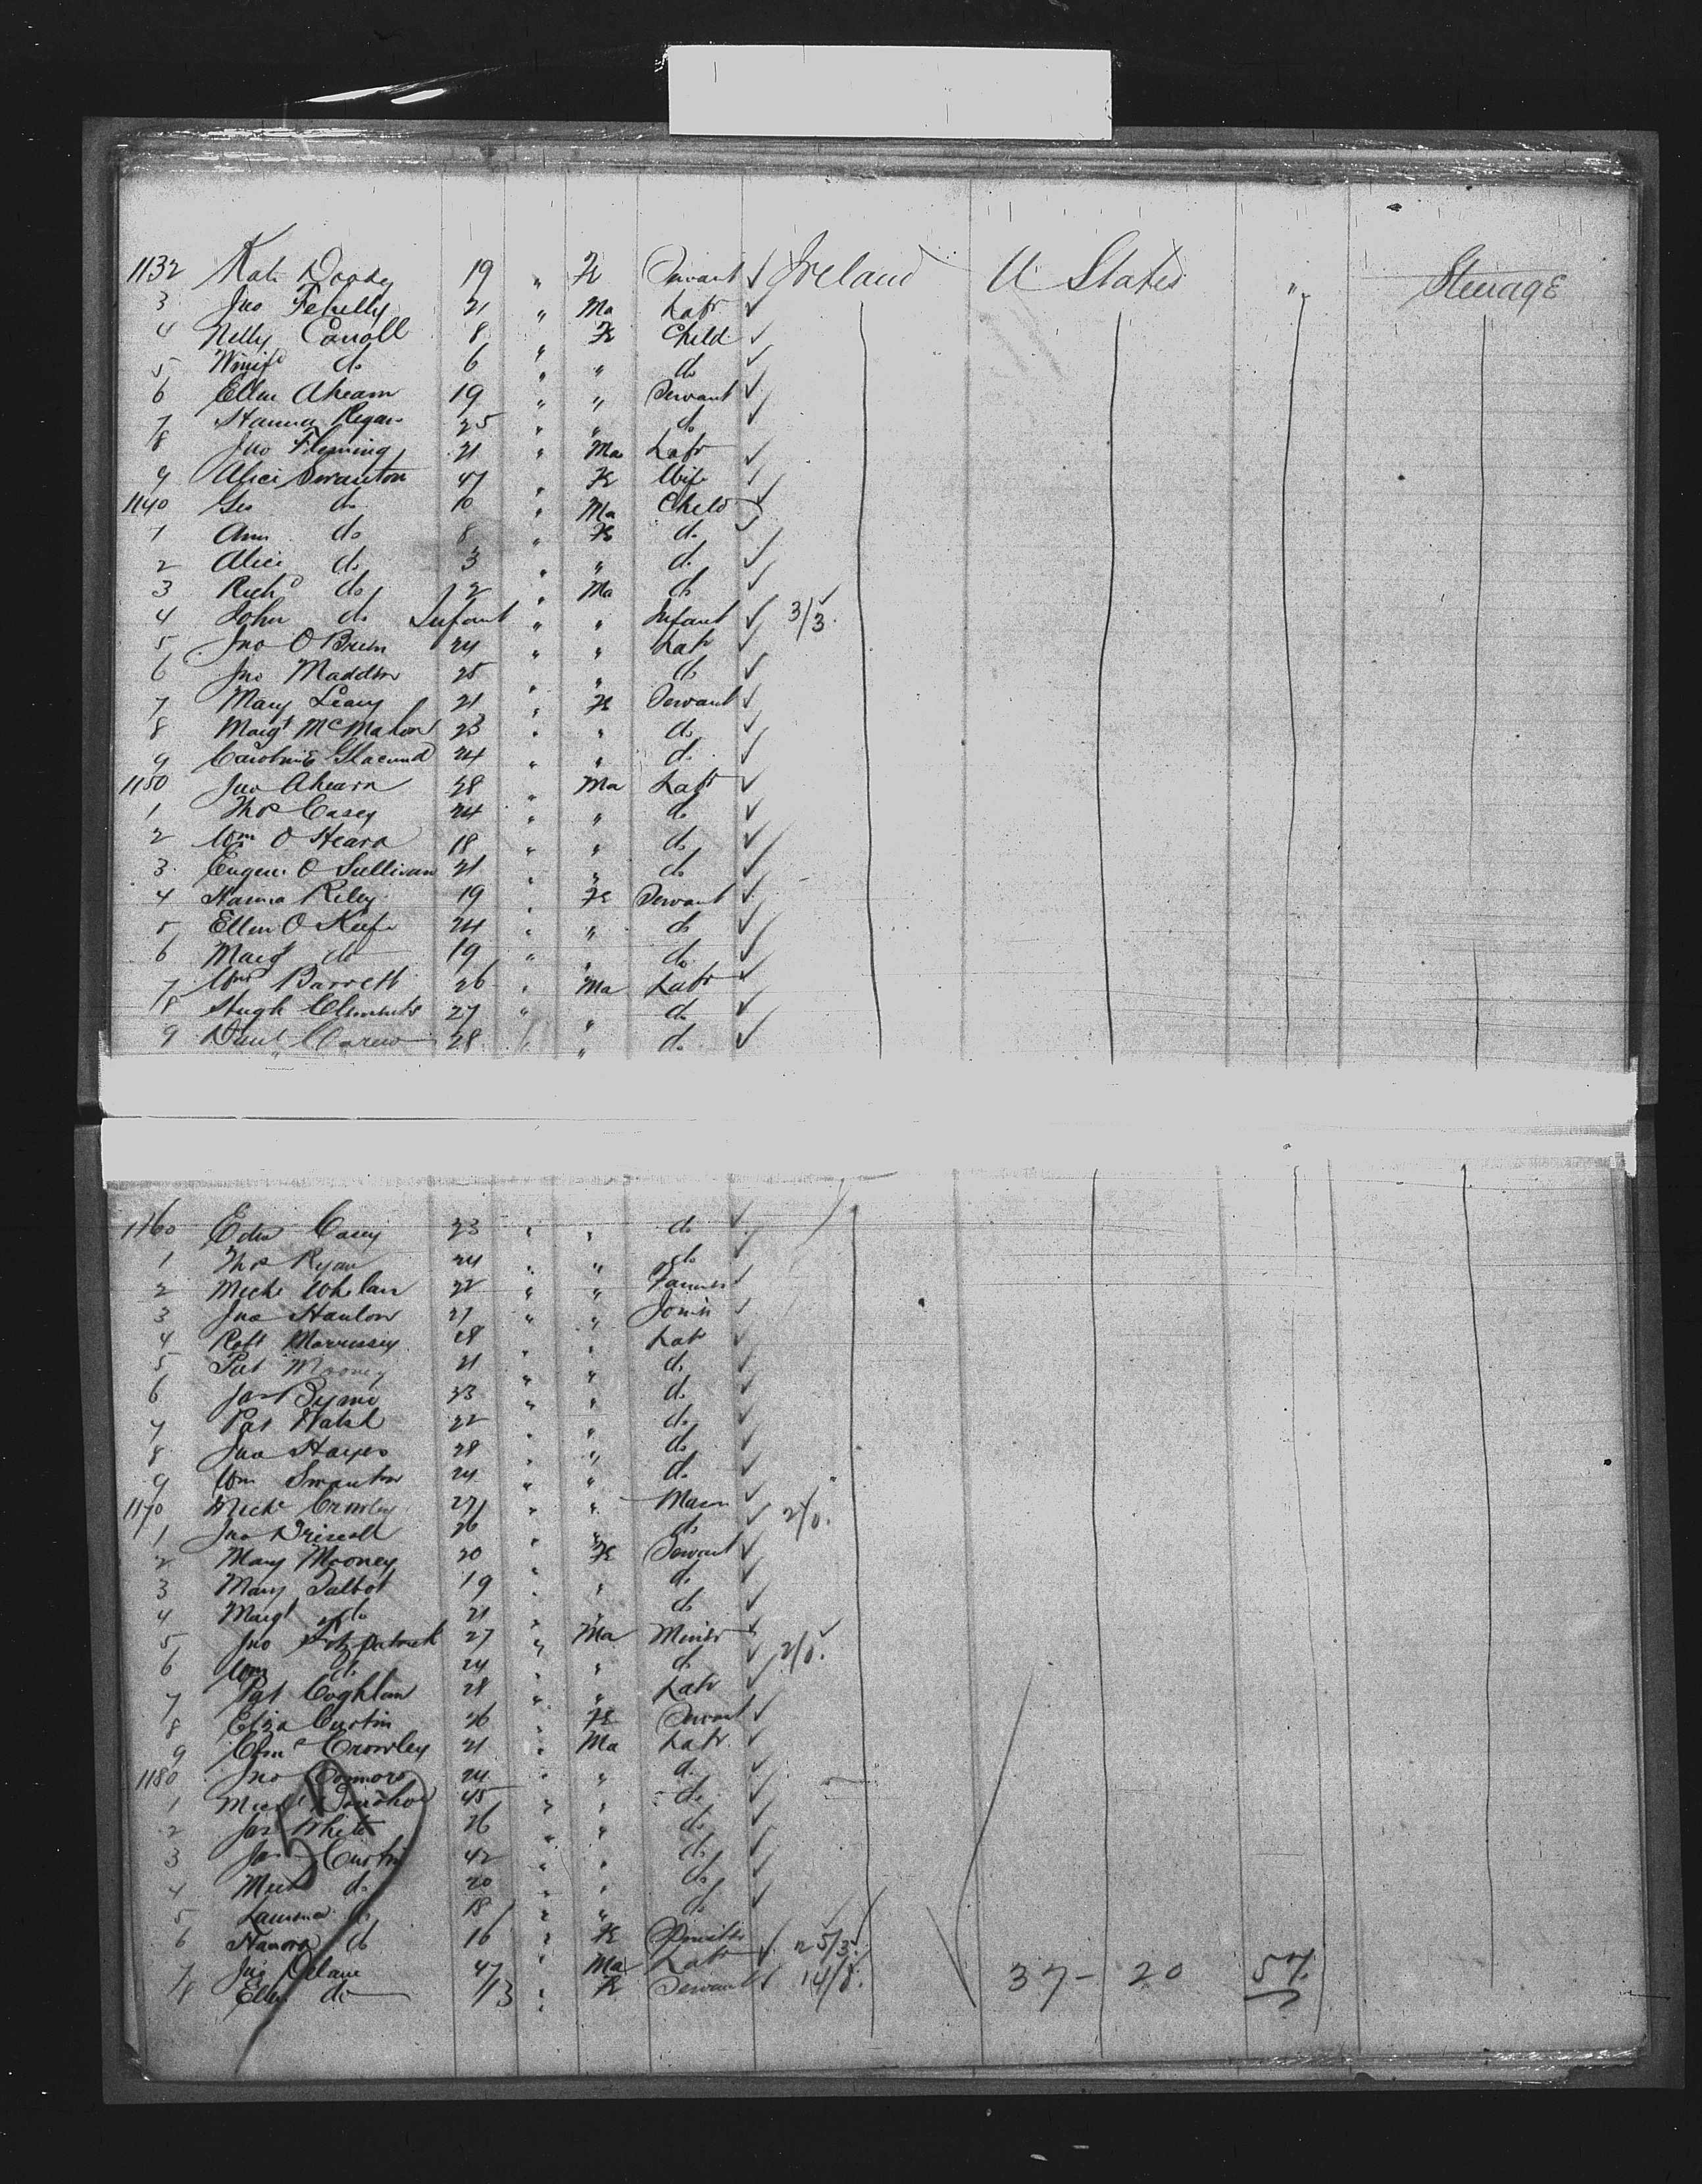 1132 Kate Doody 19 " Fe Servant ✓ Ireland U States " Steerage
3 Jno Fehelly 21 " Ma Labr ✓
4 Nelly Carroll 8 " Fe Child ✓
5 Winifd do 6 " " do ✓
6 Ellen Ahearn 19 " " Servant ✓
7 Hanna Regan 25 " " do ✓
8 Jno Fleming 21 " Ma Labr ✓
9 Alice Swanton 47 " Fe Wife ✓
1140 Geo do 10 " Ma Child ✓
1 Ann do 8 " Fe do ✓
2 Alice do 3 " " do ✓
3 Richd do 2 " Ma do ✓
4 John do Infant " " Infant ✓ 3/3.
5 Jno O Brien 24 " " Labr ✓
6 Jno Madden 25 " " do ✓
7 Mary Leary 21 " Fe Servant ✓
8 Margt McMahon 23 " " do ✓
9 Caroline 24 " " do ✓
1150 Jno Ahearn 28 " Ma Labr ✓
1 Thos Casey 24 " " do ✓
2 Wm O Hearn 18 " " do ✓
3 Eugene O Sullivan 21 " " do ✓
4 Hanna Riley 19 " Fe Servant ✓
5 Ellen O Keefe 24 " " do ✓
6 Margt do 19 " " do ✓
7 Wm Barrett 26 " Ma Labr ✓
8 Hugh Clements 27 " " do ✓
9 Danl Carew 28 " " do ✓
1160 Edwd Casey 23 " " do ✓
1 Thos Ryan 24 " " do ✓
2 Michl Whelan 22 " " Farmer ✓
3 Jno Hanlon 27 " " Joiner ✓
4 Robt Morrissey 28 " " Labr ✓
5 Pat Mooney 21 " " do ✓
6 Jas Byrne 33 " " do ✓
7 Pat Walsh 22 " " do ✓
8 Jno Hayes 28 " " do ✓
9 Wm Swanton 24 " " do ✓
1170 Michl Crowley 27 " " Mason ✓
1 Jno Driscoll 26 " " do ✓ 2/0.
2 Mary Mooney 20 " Fe Servant ✓
3 Mary Talbot 19 " " do ✓
4 Margt do 21 " " do ✓
5 Jno Fitzpatrick 27 " Ma Miner ✓
6 Wm do 24 " " do ✓ 2/0.
7 Pat Coghlan 28 " " Labr ✓
8 Eliza Curtin 26 " Fe Servant ✓
9 Crowley 21 " Ma Labr ✓
1180 Jno Connors 24 " " do ✓
1 Michl Donohoe 45 " " do ✓
2 Jas White 26 " " do ✓
3 Jas Curtin 42 " " do ✓
4 Michl do 20 " " do ✓
5 do 18 " " do ✓
6 Hanora do 16 " Fe Spinster ✓ 25/3.
7 Jas Delane 47 " Ma Labr ✓
8 Ellen do 13 " Fe Servant ✓ 14/8. 37 - 20 57